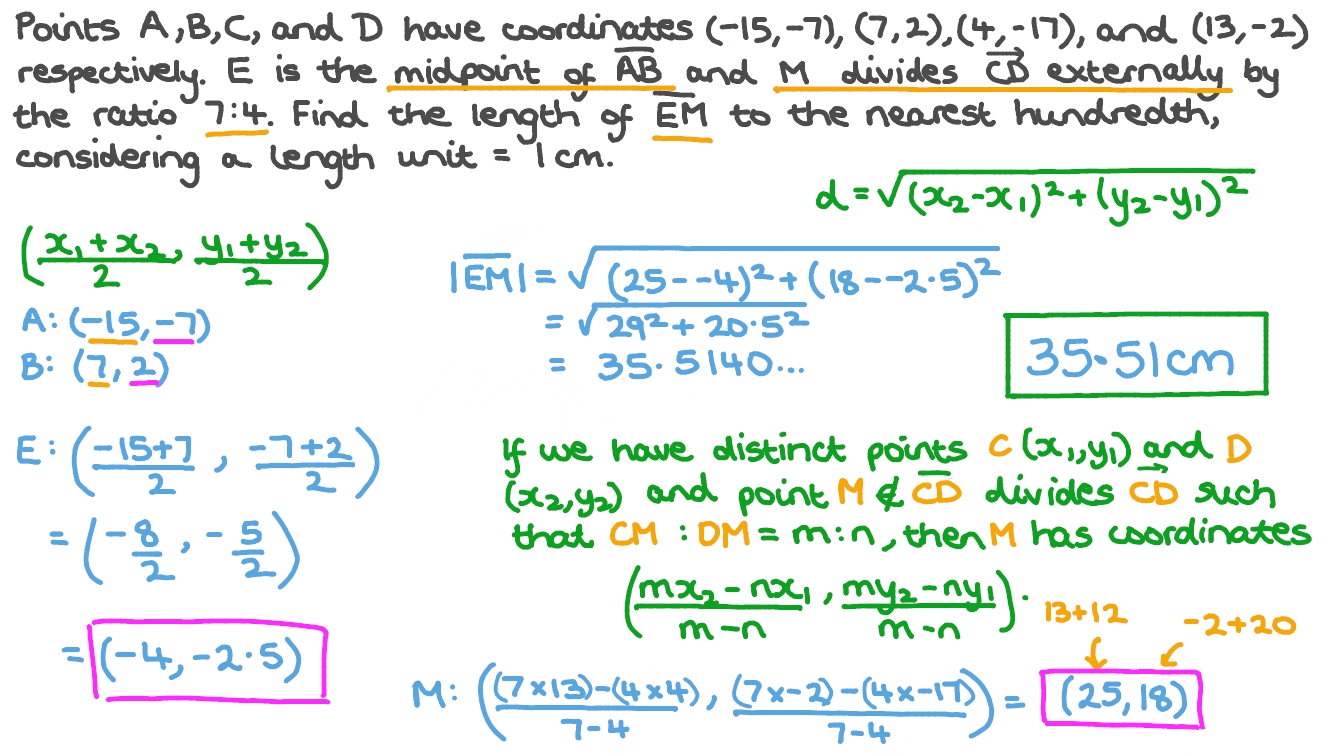 Points A, B, C, and D have coordinates (-15,-7), (7,2), (4,-17), and (13,-2)
respectively. E is the midpoint of \overline{AB} and M divides \overrightarrow{CD} externally by
the ratio 7:4. Find the length of \overline{EM} to the nearest hundredth,
considering a length unit = 1 cm.
d = √((x₂-x₁)² + (y₂-y₁)²)
((x₁+x₂)/2, (y₁+y₂)/2)
A: (-15,-7)
B: (7,2)
E: ((-15+7)/2, (-7+2)/2)
= (-8/2, -5/2)
= (-4,-2·5)
|\overline{EM}| = √((25--4)² + (18--2·5)²)
= √(29² + 20·5²)
= 35·5140...
35·51cm
If we have distinct points C (x₁,y₁) and D
(x₂,y₂) and point M ∉ \overline{CD} divides \overrightarrow{CD} such
that CM : DM = m:n, then M has coordinates
((mx₂-nx₁)/(m-n), (my₂-ny₁)/(m-n)).
13+12 -2+20
M: (((7×13)-(4×4))/(7-4), ((7×-2)-(4×-17))/(7-4)) = (25,18)